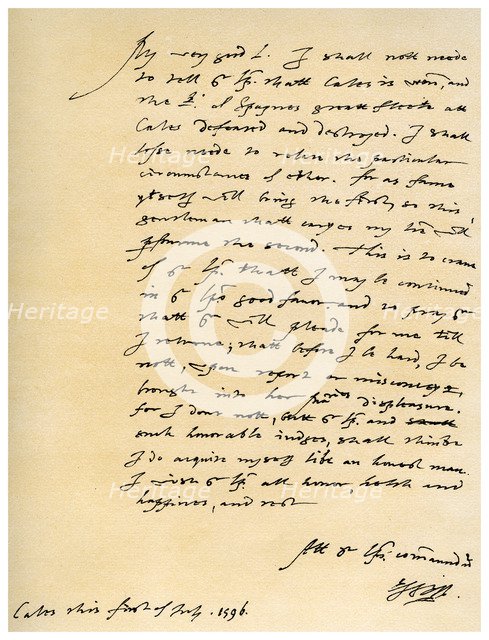 My very good L. I shall nott neede
to tell yr Lp. thatt Cales is won, and
the K: of Spaynes great fleete att
Cales defeated and destroyed. I shall
lesse neede to relate the particular
circumstances of ether. For as fame
ytself will bring the first, so this
gentleman thatt caryes my lre will
performe the second. This is to crave
of yr Lp. thatt I may be continued
in yr Lps good favor and to pray yr
thatt yr will pleade for me till
I retorne; thatt before I be hard, I be
nott, upon report or misconceyt,
brought into her Mties displeasure.
for I dout nott, butt yr Lp. and
such honorable judges, shall thinke
I do acquite myself like an honest man.
I wish yr Lp. all honor, helth and
happines, and rest
Att yr Lps. commandm
Cales this first of July. 1596.
Heritage
Heritage
Heritage
Heritage
Heritage
Heritage
©